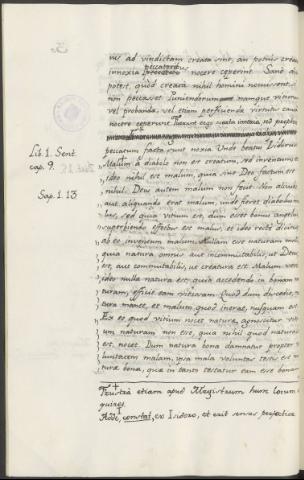 rus ad vindictam creata sint, an potius creata
innoxia peccatoribus nocere ceperint. Sane di
potest, quod creata nihil homini nocuissent, si
non peccasset. Puniendorum namque vitiorum
vel probanda, vel etiam perficienda virtutis causa
nocere ceperunt. Fuerunt ergo creata innoxia, sed propter
peccatum facta sunt noxia. Unde beatus Isidorus
Malum a diabolo non est creatum, sed inventum, et
ideo nihil est malum, quia sine Deo factum est
nihil. Deus autem malum non fecit. Non
aut aliquando erat malum, unde fieret diabolus
lus, sed quia vitium est, dum esset bonus angelus
superbiendo effectus est malus, et ideo recte dicitur
ab eo inventum malum. Nullam esse naturam mali
quia natura omnis aut incommutabilis, ut Deus
est, aut commutabilis, ut creatura est. Malum vero
ideo nulla natura est, quia accedendo in bonam na
turam, efficit eam vitiosam. Quod dum discedit, na
tura manet, et malum, quod inerat, nusquam est.
Ex eo quod vitium nocet naturæ, agnoscitur viti
um naturam non esse, quia nihil quod naturale
est, nocet. Dum natura bona damnatur propter vo
luntatem malam, ipsa mala voluntas testis est na
turæ bonæ, quæ in tantum testatur eam esse bonam
Lib. 1. Sent.
cap. 9.
Sap. 1. 13
Frustra etiam apud Magistrum hunc locum
quires.
Adde, constat, ex Isidoro, et erit sensus perfectior